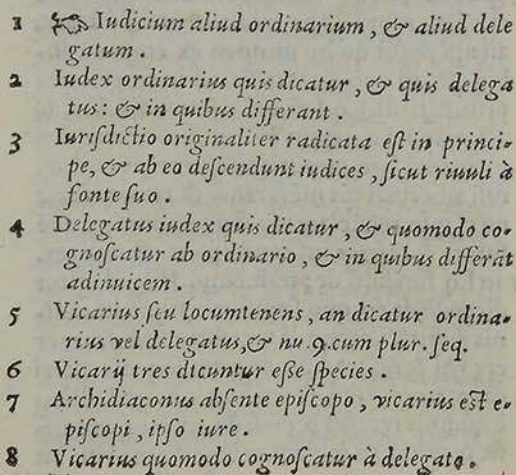 1 ☞ Iudicium aliud ordinarium, & aliud dele
gatum.
2 Iudex ordinarius quis dicatur, & quis delega
tus: & in quibus differant.
3 Iurisdictio originaliter radicata est in princi-
pe, & ab eo descendunt iudices, sicut riuuli à
fonte suo.
4 Delegatus iudex quis dicatur, & quomodo co-
gnoscatur ab ordinario, & in quibus differãt
adinuicem.
5 Vicarius seu locumtenens, an dicatur ordina-
rius vel delegatus, & nu. 9. cum plur. seq.
6 Vicarij tres dicuntur esse species.
7 Archidiaconus absente episcopo, vicarius est e-
piscopi, ipso iure.
8 Vicarius quomodo cognoscatur à delegato.